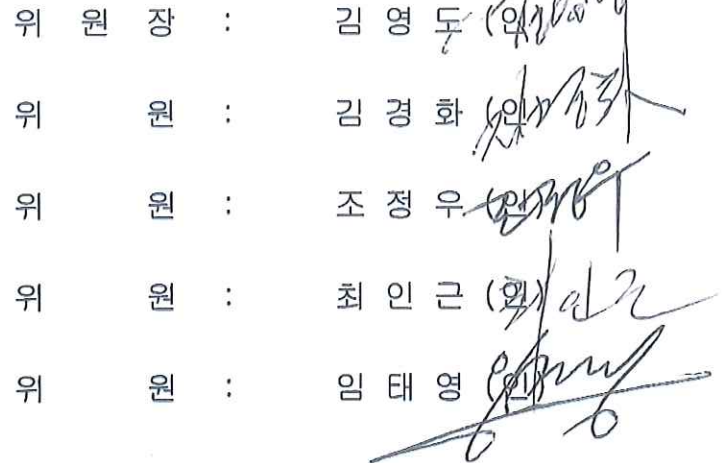 위 원 장 : 김 영 도 (인)
위 원 : 김 경 화 (인)
위 원 : 조 정 우 (인)
위 원 : 최 인 근 (인)
위 원 : 임 태 영 (인)